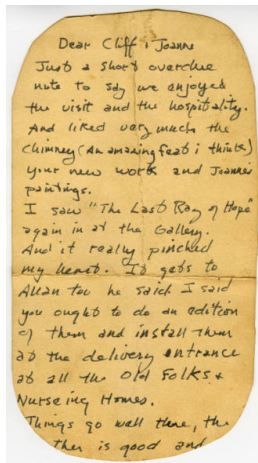 Dear Cliff & Joanne
Just a short overdue
note to say we enjoyed
the visit and the hospitality.
And liked very much the
chimney (An amazing feat i think)
your new work and Joannes
paintings.
I saw "The Last Ray of Hope"
again in at the Gallery.
And it really pinched
my heart. It gets to
Allan too he said I said
you ought to do an edition
of them and install them
at the delivery entrance
at all the Old Folks &
Nurseing Homes.
Things go well there, the
ther is good and